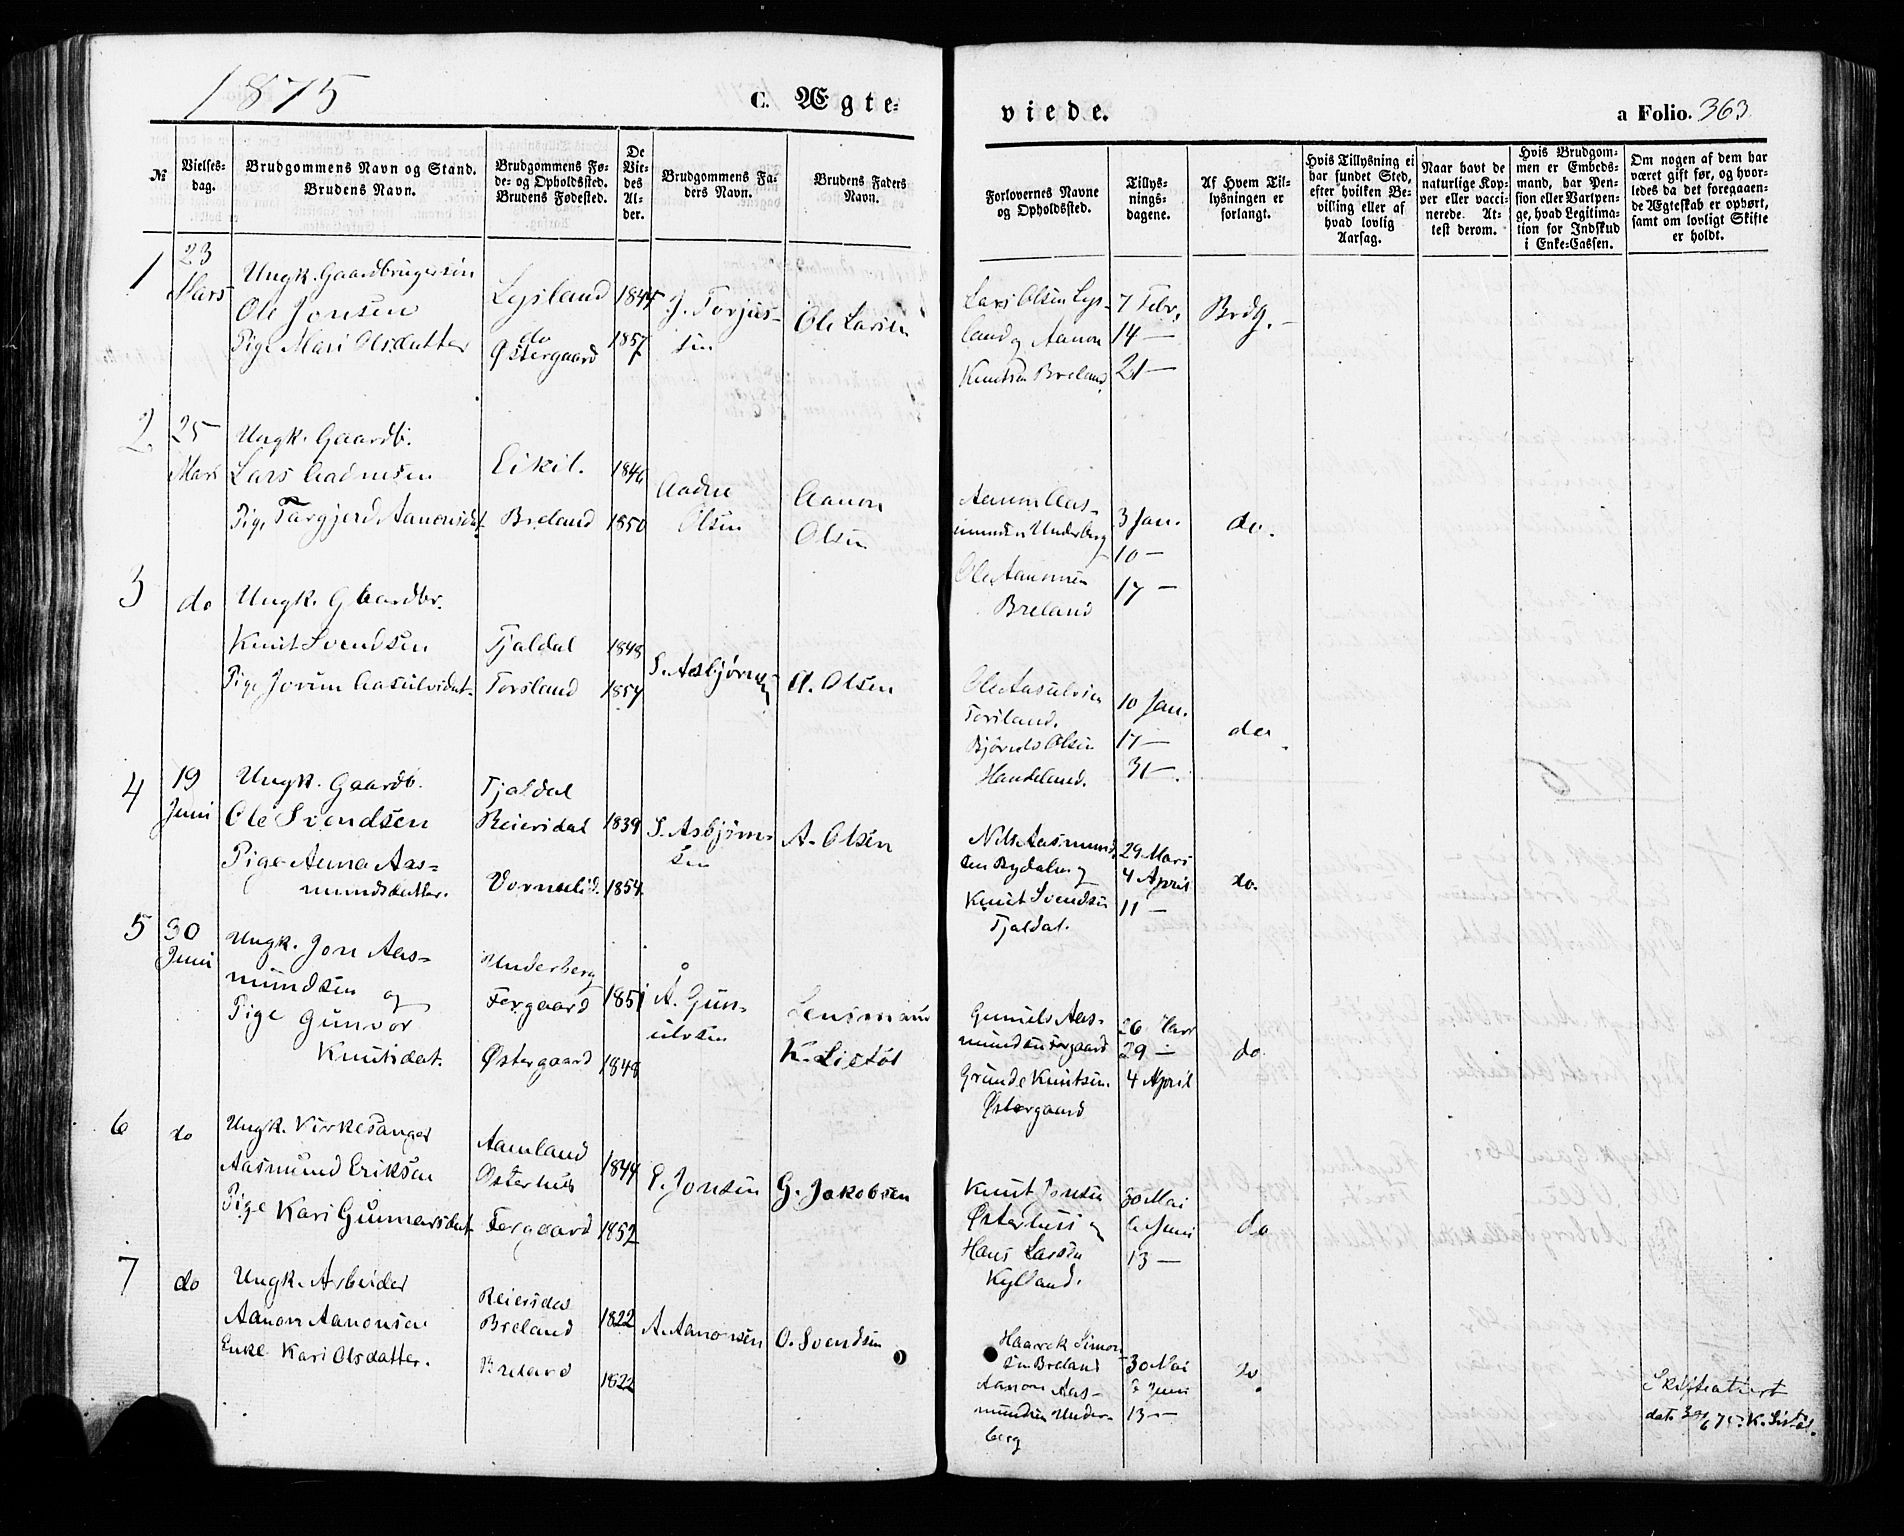 1875
C. Ægte-
viede.
a Folio. 363
№
Vielses-
dag.
Brudgommens Navn og Stand.
Brudens Navn.
Brudgommens Fø-
de- og Opholdssted.
Brudens Fødested.
De
Vie-
des
Al-
der.
Brudgommens Fa-
ders Navn.
Brudens Faders
Navn.
Forlovernes Navne
og Opholdssted.
Tillys-
nings-
dagene.
Af Hvem Til-
lysningen er
forlangt.
Hvis Tillysning ei
har fundet Sted,
efter hvilken Be-
villing eller af
hvad lovlig
Aarsag.
Naar havt de
naturlige Kop-
per eller vacci-
nerede. At-
test derom.
Hvis Brudgom-
men er Embeds-
mand, har Pen-
sion eller Vartpen-
ge, hvad Legitima-
tion for Indskud
i Enke-Cassen.
Om nogen af dem har
været gift før, og hvor-
ledes da det foregaaen-
de Ægteskab er ophørt,
samt om lovligt Skifte
er holdt.
1
23
Mars
Ungk. Gaardbrugersøn
Ole Jonsen
Pige Mari Olsdatter
Lysland
do
Østergaard
1844
1857
J. Torjus-
sen
Ole Larsen
Lars Olsen Lys-
land og Aanon
Knutsen Breland
7 Febr.
14 —
21 —
Brdg. —
2
25
Mars
Ungk. Gaardb.
Lars Aadnesen
Pige Targjerd Aanonsdat.
Eikil.
Breland
1846
1850
Aadne
Olsen
Aanon
Olsen
Aanon Aas-
mundsen Underberg
Ole Aanonsen
Breland
3 Jan.
10 —
17 —
do.
3
do
Ungk. Gaardbr.
Knut Svendsen
Pige Jorun Aasulvsdat.
Tjaldal
Torsland
1848
1854
S. Asbjørnsen
A. Olsen
Ole Aasulvsen
Torsland.
Bjørulv Olsen
Handeland.
10 Jan.
17 —
31 —.
do.
4
19
Juni
Ungk. Gaardb.
Ole Svendsen
Pige Anna Aas-
mundsdatter.
Tjaldal
Reiersdal
Vormelid.
1839
1854.
S. Asbjørn-
sen
A. Olsen
Nils Aasmund
sen Rydalen og
Knut Svendsen
Tjaldal.
29 Mars
4 April
11 —
do.
5
30
Juni
Ungk. Jon Aas-
mundsen og
Pige Gunvor
Knutsdat.
Underberg
Forgaard
Østergaard
1851
1848
Å. Gun-
ulvsen
Lensmand
K. Listøl
Gunulv Aas-
mundsen Forgaard
Grunde Knutsen
Østergaard
26 Mars
29 —
4 April
do.
6
do
Ungk. Kirkesanger
Aasmund Eriksen
Pige Kari Gunnarsdat.
Aamland
Osterhus
Forgaard
1844
1852
E. Jonsen
G. Jakobsen
Knut Jonsen
Østerhus og
Hans Larsen
Kylland.
30 Mai
6 Juni
13 —
do
7
do
Ungk. Arbeider
Aanon Aanonsen
Enke Kari Olsdatter.
Reiersdal
Breland
Breland
1822
1822
A. Aanonsen
O. Svendsen
Haavek Simon
sen Breland
Aanon Aas-
mundsen Under-
berg
30 Mai
6 Juni
13 —
do
Skifteattest
dat. 30/6 75. K. Listøl.